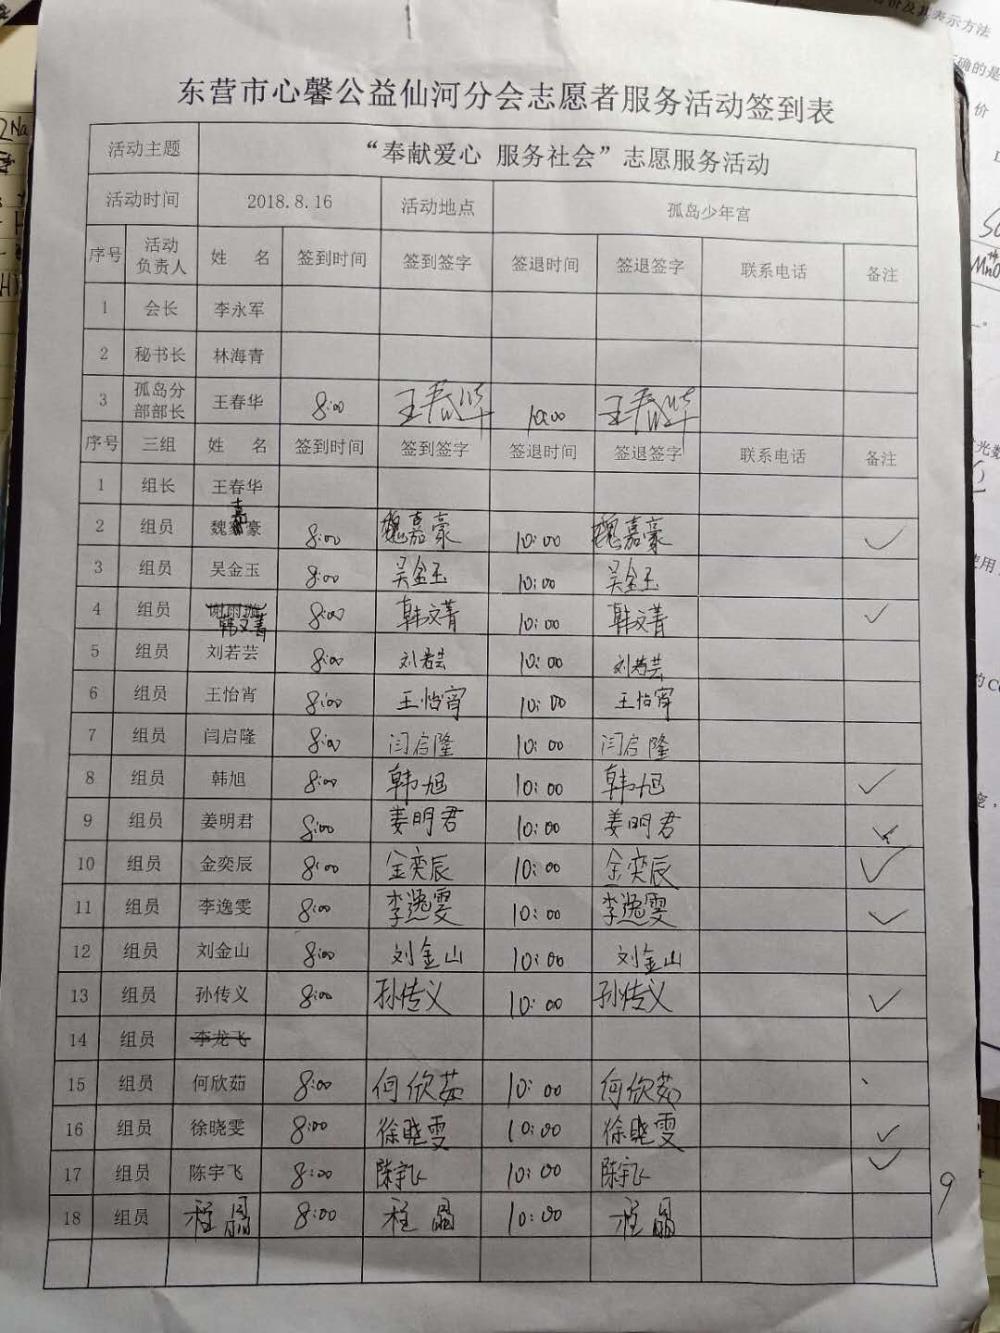 东营市心馨公益仙河分会志愿者服务活动签到表
活动主题 “奉献爱心 服务社会”志愿服务活动
活动时间 2018.8.16 活动地点 孤岛少年宫
序号 活动负责人 姓 名 签到时间 签到签字 签退时间 签退签字 联系电话 备注
1 会长 李永军
2 秘书长 林海青
3 孤岛分部部长 王春华 8:00 王春华 10:00 王春华
序号 三组 姓 名 签到时间 签到签字 签退时间 签退签字 联系电话 备注
1 组长 王春华
2 组员 魏嘉豪 8:00 魏嘉豪 10:00 魏嘉豪 ✓
3 组员 吴金玉 8:00 吴金玉 10:00 吴金玉
4 组员 韩文菁 8:00 韩文菁 10:00 韩文菁 ✓
5 组员 刘若芸 8:00 刘若芸 10:00 刘若芸
6 组员 王怡宵 8:00 王怡宵 10:00 王怡宵
7 组员 闫启隆 8:00 闫启隆 10:00 闫启隆
8 组员 韩旭 8:00 韩旭 10:00 韩旭 ✓
9 组员 姜明君 8:00 姜明君 10:00 姜明君 ✓
10 组员 金奕辰 8:00 金奕辰 10:00 金奕辰 ✓
11 组员 李逸雯 8:00 李逸雯 10:00 李逸雯 ✓
12 组员 刘金山 8:00 刘金山 10:00 刘金山
13 组员 孙传义 8:00 孙传义 10:00 孙传义 ✓
14 组员 李龙飞
15 组员 何欣茹 8:00 何欣茹 10:00 何欣茹
16 组员 徐晓雯 8:00 徐晓雯 10:00 徐晓雯 ✓
17 组员 陈宇飞 8:00 陈宇飞 10:00 陈宇飞 ✓
18 组员 程晶 8:00 程晶 10:00 程晶
9